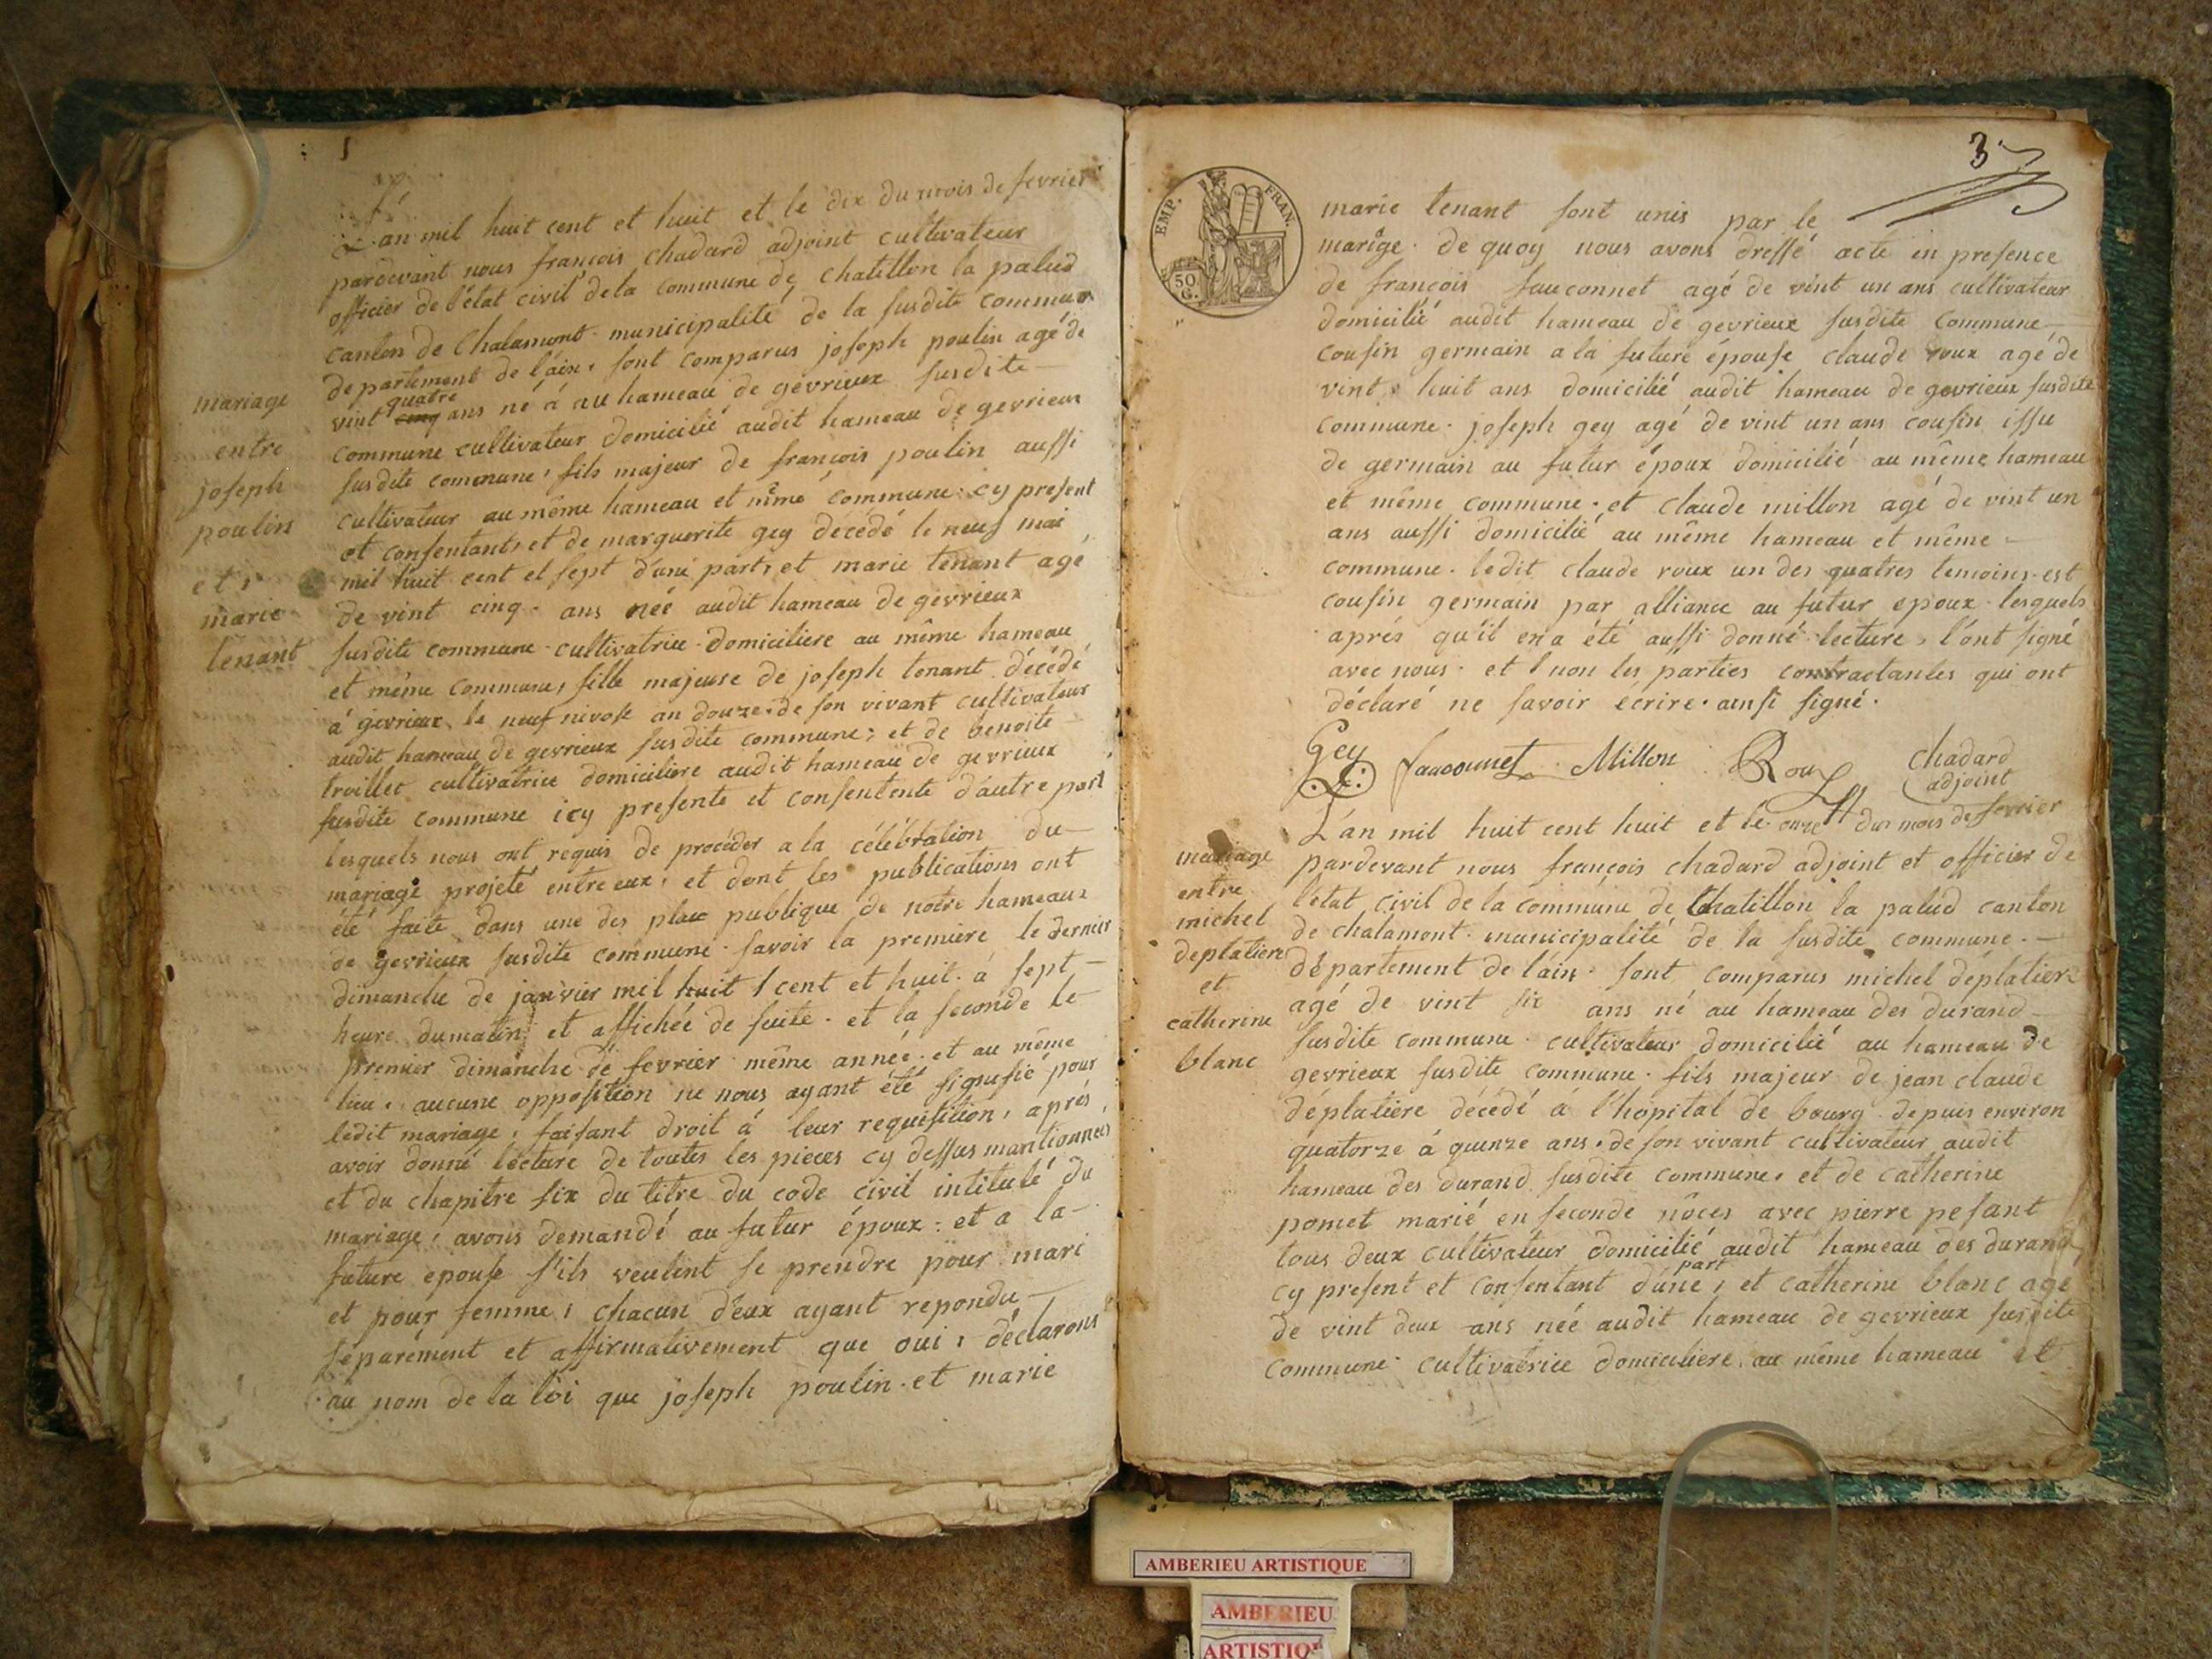 L'an mil huit cent et huit et le dix du mois de fevrier
pardevant nous francois chadard adjoint cultivateur
officier de l'état civil dela commune de chatillon la palud
canton de Chalamont municipalité de la susdite commune
departement de l'ain, sont comparus joseph poulin agé de
quatre
vint cinq ans né á au hameau de gevrieux susdite
commune cultivateur domicilié audit hameau de gevrieux
susdite commune, fils majeur de francois poulin aussi
cultivateur au même hameau et même commune cy present
et consentant, et de marguerite gey décédé le neuf mai
mil huit cent et sept d'une part, et marie tenant agé
de vint cinq ans née audit hameau de gevrieux
susdite commune cultivatrice domiciliere au même hameau
et même commune, fille majeure de joseph tenant décédé
á gevrieux le neuf nivose an douze de son vivant cultivateur
audit hameau de gevrieux susdite commune; et de benoite
troillet cultivatrice domiciliere audit hameau de gevrieux
susdite commune icy presente et consentente d'autre part
lesquels nous ont requis de procéder a la célébration du
mariage projeté entre eux, et dont les publications ont
été faite dans une des place publique de notre hameaux
de gevrieux susdite commune savoir la premiere le dernier
dimanche de janvier mil huit cent et huit á sept
heure dumatin et affichée de suite et la seconde le
premier dimanche de fevrier même année et au même
lieu, aucune opposition ne nous ayant été signifié pour
ledit mariage, faisant droit á leur requisition, aprés
avoir donné lecture de toutes les pieces cy dessus mantionnées
et du chapitre six du titre du code civil intitulé du
mariage, avons demandé au futur époux et a la
future epouse s'ils veulent se prendre pour mari
et pour femme, chacun d'eux ayant repondu
séparément et affirmativement que oui, déclarons
au nom de la loi que joseph poulin et marie
mariage
entre
joseph
poulin
et
marie
tenant
3
EMP. FRAN.
50
C.
marie tenant sont unis par le
marige de quoy nous avons dressé acte in presence
de francois fauconnet agé de vint un ans cultivateur
domicilié audit hameau de gevrieux susdite commune
cousin germain a la future épouse claude roux agé de
vint huit ans domicilié audit hameau de gevrieux susdite
commune joseph gey agé de vint un ans cousin issu
de germain au futur époux domicilié au même hameau
et même commune et claude millon agé de vint un
ans aussi domicilié au même hameau et même
commune ledit claude roux un des quatres temoins est
cousin germain par alliance au futur epoux lesquels
aprés qu'il en a été aussi donné lecture, l'ont signé
avec nous et non les parties contractantes qui ont
déclaré ne savoir écrire ainsi signé.
Gey fauconnet Millon Roux chadard
adjoint
L'an mil huit cent huit et le onze du mois de fevrier
pardevant nous françois chadard adjoint et officier de
l'état civil de la commune de Chatillon la palud canton
de chalamont municipalité de la susdite commune
département de l'ain sont comparus michel déplatiere
agé de vint six ans né au hameau des durand
susdite commune cultivateur domicilié au hameau de
gevrieux susdite commune fils majeur de jean claude
déplatiere décédé á l'hopital de bourg depuis environ
quatorze á quinze ans de son vivant cultivateur audit
hameau des durand susdite commune, et de catherine
pomet marié en seconde nôces avec pierre pesant
tous deux cultivateur domicilié audit hameau des durand
part
cy present et consentant d'une, et catherine blanc agé
de vint deux ans née audit hameau de gevrieux susdite
commune cultivatrice domiciliere au même hameau et
mariage
entre
michel
deplatiere
et
catherine
blanc
AMBERIEU ARTISTIQUE
AMBERIEU
ARTISTIQU